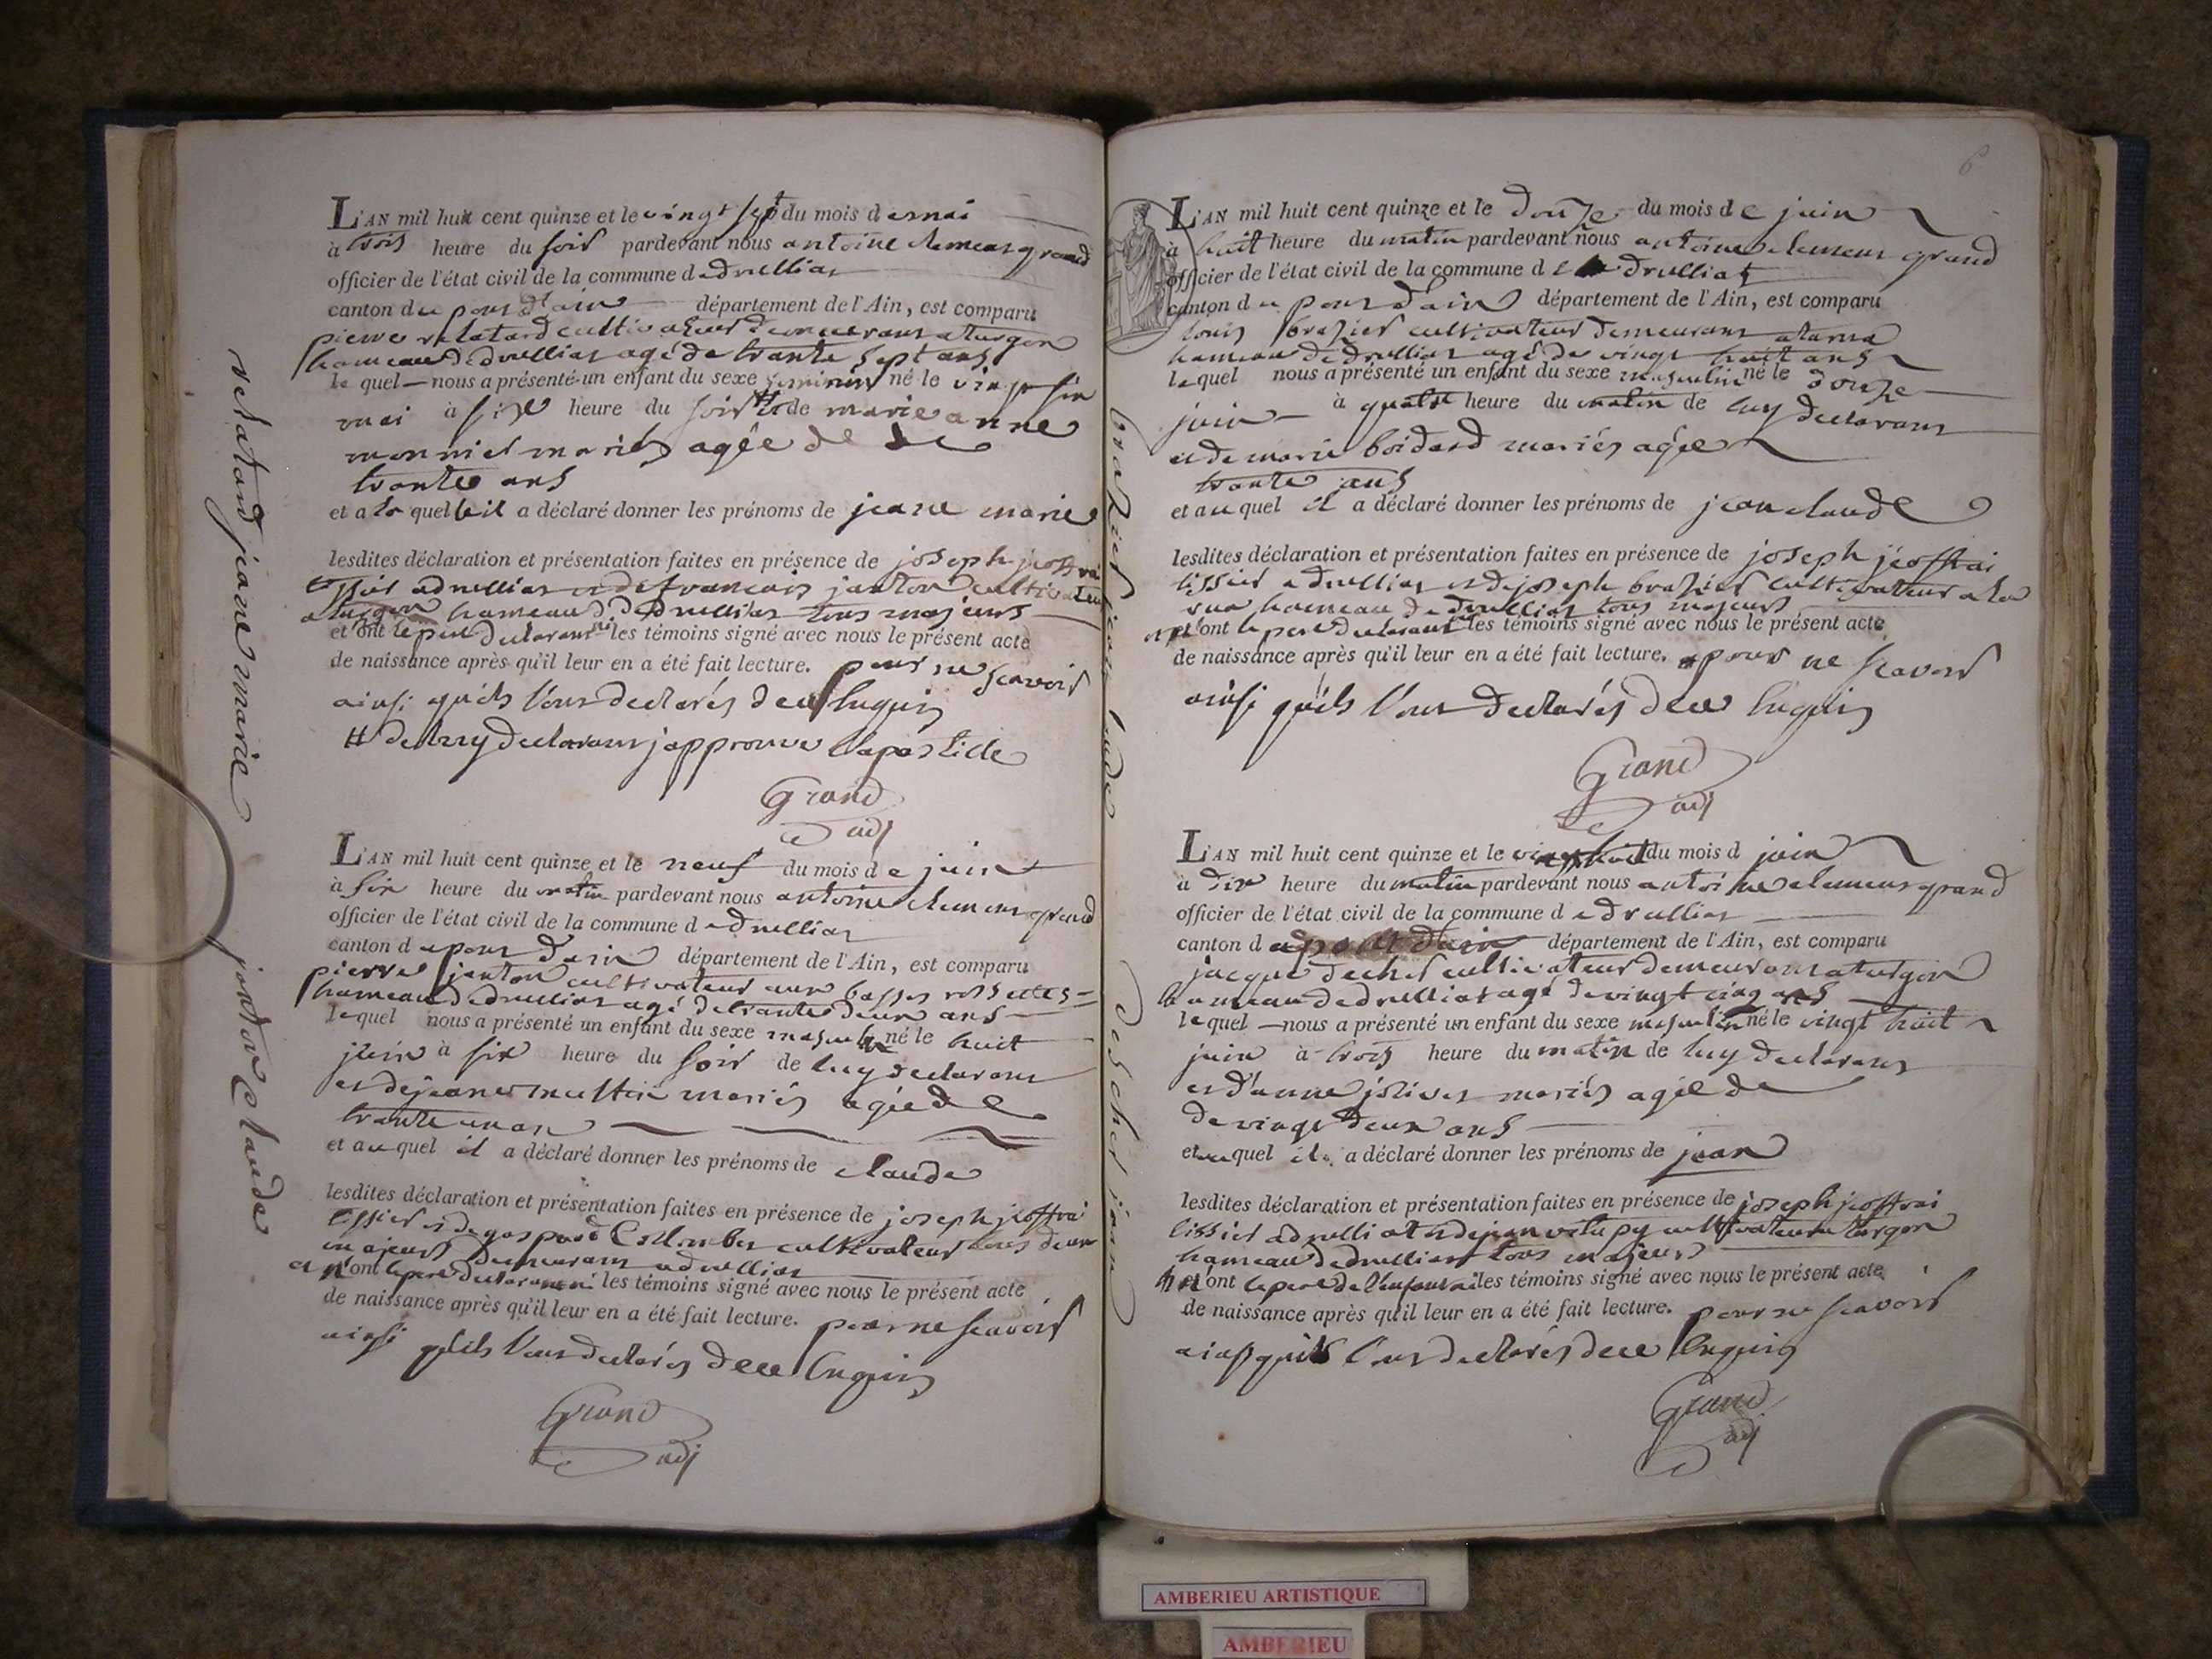 L'AN mil huit cent quinze et le vingt sept du mois de mai
à trois heure du soir pardevant nous antoine clemens grand
officier de l'état civil de la commune de druillias
canton du pons d'ain département de l'Ain, est comparu
pierre relatard cultivateur demeurans a turgon
hameau de druillias agé de trante sept ans
le quel nous a présenté un enfant du sexe feminin né le vingt six
mai à six heure du soir # et de marie anne
monnier mariés agée de
trante ans
et a la quelle il a déclaré donner les prénoms de jeane marie
lesdites déclaration et présentation faites en présence de joseph jeoffrai
tissier a druillias et de francois janton cultivateur
a turgon hameau de druillias tous majeurs
et n'ont le pere declarans ni les témoins signé avec nous le présent acte
de naissance après qu'il leur en a été fait lecture. pour ne scavoir
ainsi qu'ils l'ons declarés de ce enquis
# de luy declarans j'approuve l'apostille
Grand
adj
relatard jeane marie
L'AN mil huit cent quinze et le neuf du mois de juin
à six heure du matin pardevant nous antoine clemens grand
officier de l'état civil de la commune de druillias
canton de pons d'ain département de l'Ain, est comparu
pierre janton cultivateur aux basses rossettes
hameau de druillias agé de trante deux ans
le quel nous a présenté un enfant du sexe masculin né le huit
juin à six heure du soir de luy declarans
et de jeane mariés agée de
trante un an
et au quel il a déclaré donner les prénoms de claude
lesdites déclaration et présentation faites en présence de joseph jeoffrai
tissier et de gaspard Collombet cultivateur tous deux
majeurs demeurans a druillias
et n'ont le pere declarans ni les témoins signé avec nous le présent acte
de naissance après qu'il leur en a été fait lecture. pour ne scavoir
ainsi qu'ils l'ons declarés de ce enquis
Grand
adj
janton Claude
6
L'AN mil huit cent quinze et le douze du mois de juin
à huit heure du matin pardevant nous antoine clemens grand
officier de l'état civil de la commune de druillias
canton du pons d'ain département de l'Ain, est comparu
louis brazier cultivateur demeurans
hameau de druillias agé de vingt huit ans
le quel nous a présenté un enfant du sexe masculin né le douze
juin à quatre heure du matin de luy declarans
et de marie boidard mariés agée
trante ans
et au quel il a déclaré donner les prénoms de jean claude
lesdites déclaration et présentation faites en présence de joseph jeoffrai
tissier a druillias et de joseph brazier cultivateur a la
rua hameau de druillias tous majeurs
et n'ont le pere declarans ni les témoins signé avec nous le présent acte
de naissance après qu'il leur en a été fait lecture. pour ne scavoir
ainsi qu'ils l'ons declarés de ce enquis
Grand
adj
brazier jean claude
L'AN mil huit cent quinze et le vingt huit du mois d juin
à dix heure du matin pardevant nous antoine clemens grand
officier de l'état civil de la commune de druillias
canton de pont d'ain département de l'Ain, est comparu
jacque decher cultivateur demeurans a turgon
hameau de druillias agé de vingt cinq ans
le quel nous a présenté un enfant du sexe masculin né le vingt huit
juin à trois heure du matin de luy declarans
et d'anne jolivet mariés agée de
de vingt deux ans
et au quel il a déclaré donner les prénoms de jean
lesdites déclaration et présentation faites en présence de joseph jeoffrai
tissier a druillias et de jean vitupy cultivateur a turgon
hameau de druillias tous majeurs
et n'ont le pere de l'enfant ni les témoins signé avec nous le présent acte
de naissance après qu'il leur en a été fait lecture. pour ne scavoir
ainsi qu'ils l'ons declarés de ce enquis
Grand
adj
decher jean
AMBERIEU ARTISTIQUE
AMBERIEU